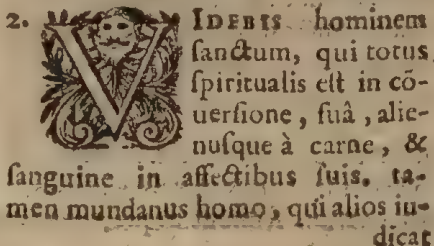 2. VIDEBIS hominem
ſanctum, qui totus
ſpiritualis eſt in cō-
uerſione, ſuâ, alie-
nuſque à carne, &
ſanguine in affectibus ſuis. ta-
men mundanus homo, qui alios iu-
dicat